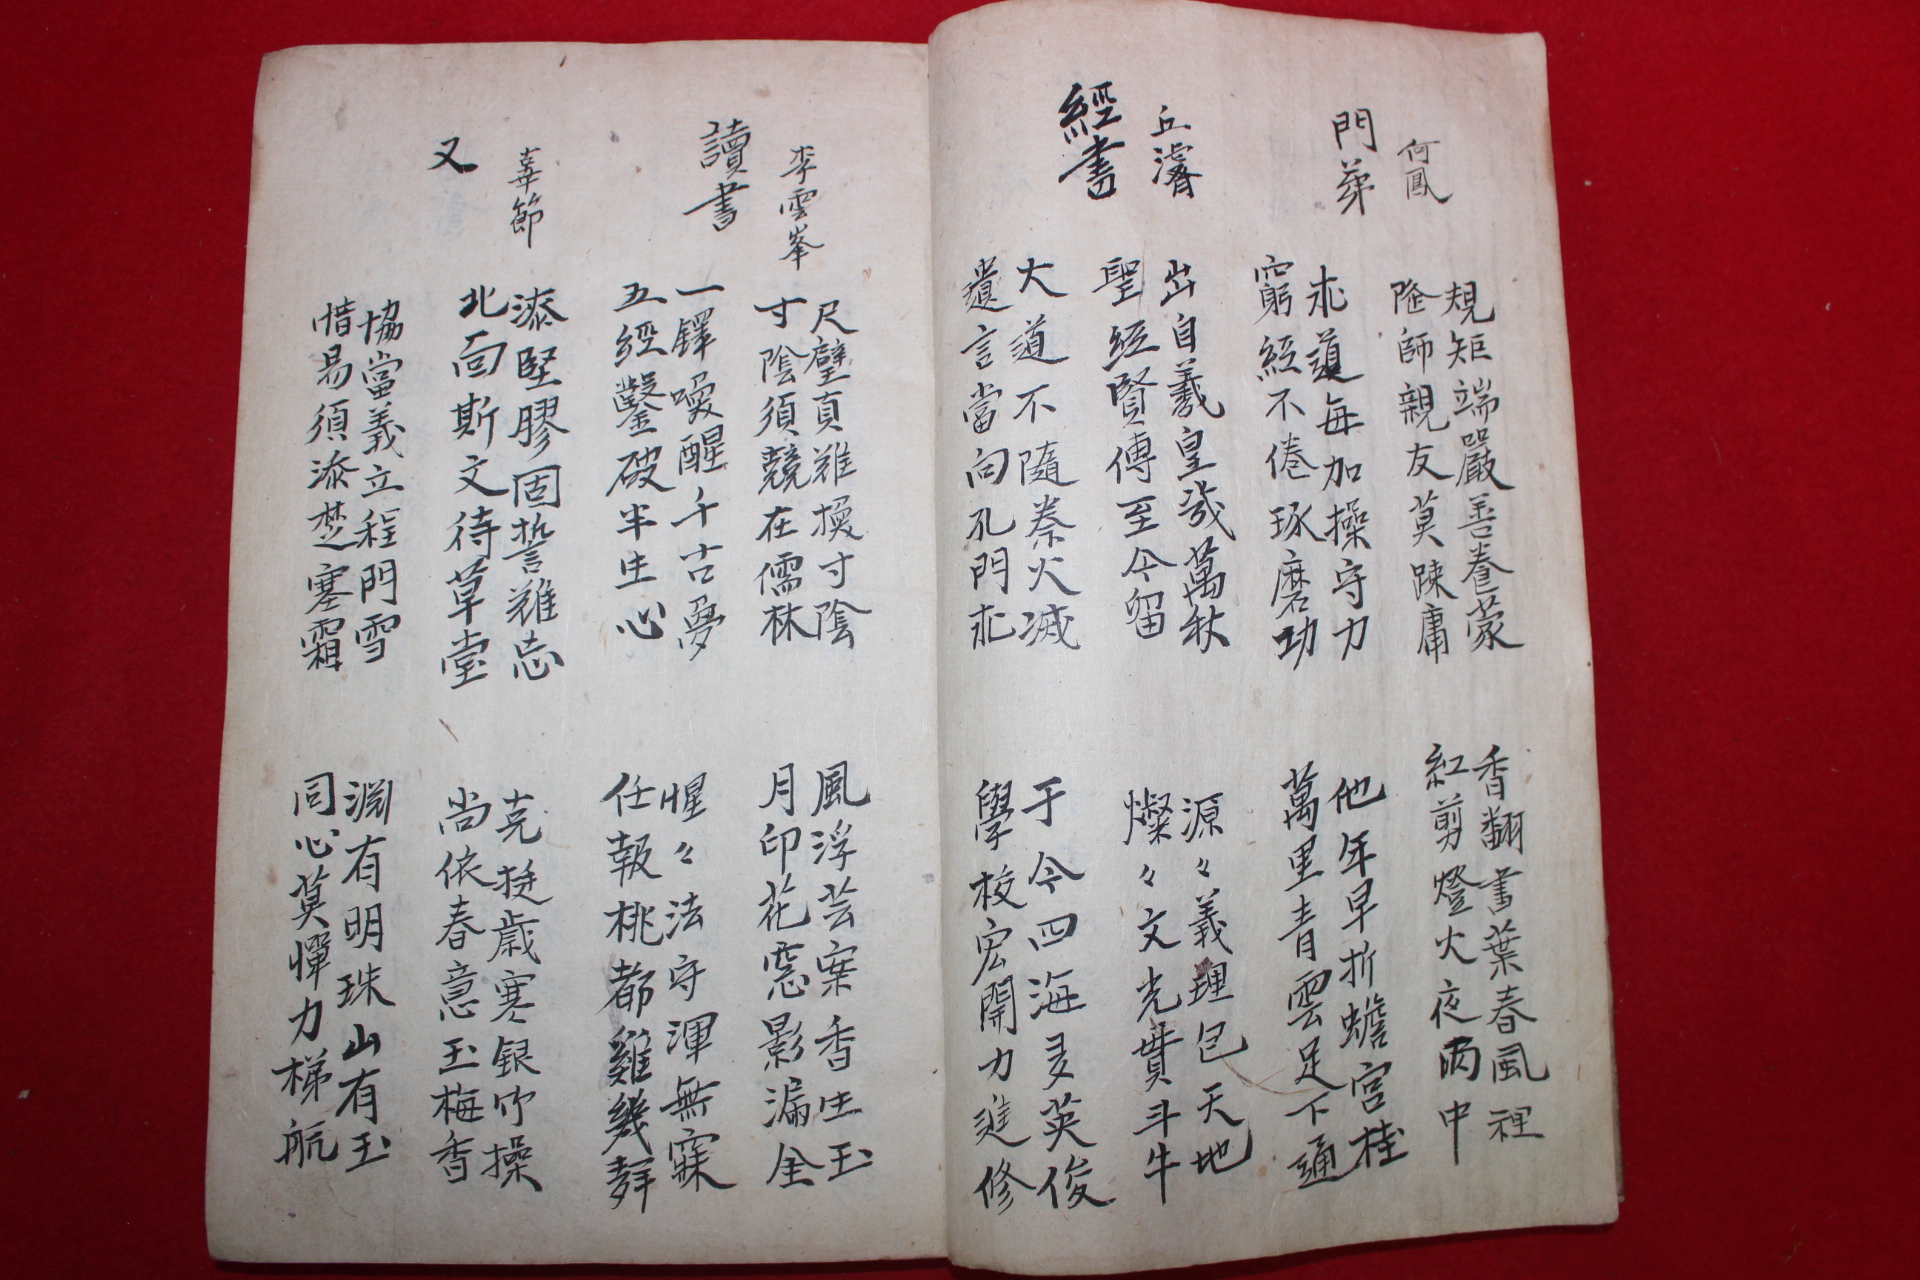 何鳳
門第
規矩端嚴善養蒙
隆師親友莫踈庸
香翻書葉春風裡
紅剪燈火夜雨中
求道每加操守力
窮經不倦琢磨功
他年早折蟾宮桂
萬里青雲足下通
丘濬
經書
出自羲皇幾萬秋
聖經賢傳至今留
源々義理包天地
燦々文光貫斗牛
大道不隨秦火滅
遺言當向孔門求
于今四海多英俊
學校宏開力進修
李雲峯
讀書
尺璧真難換寸陰
寸陰須競在儒林
風浮芸案香生玉
月印花窓影漏金
一鐸喚醒千古夢
五經鑿破半生心
惺々法守渾無寐
任報桃都雞幾群
節
又
漆堅膠固誓難忘
北面斯文待草堂
克挺歲寒銀竹操
尚依春意玉梅香
協當義立程門雪
惜易須添楚塞霜
淵有明珠山有玉
同心莫憚力梯航